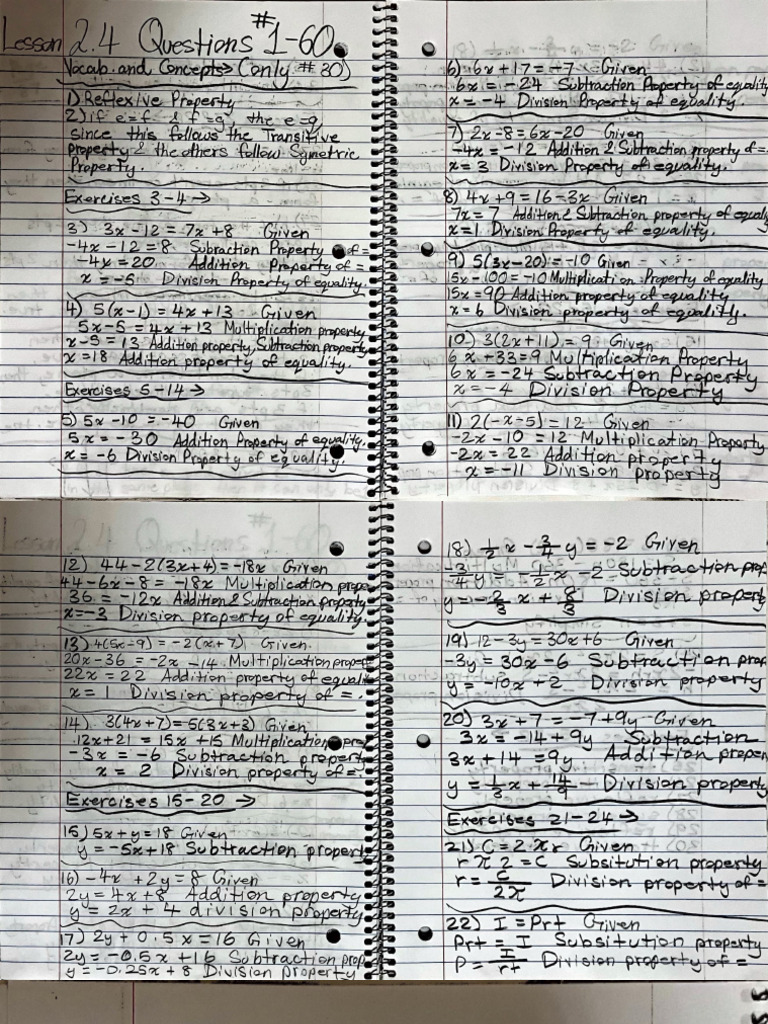 Lesson 2.4 Questions #1-60.
Vocab. and Concepts→ (only #30)
1) Reflexive Property
2) if e=f & f=g, the e=g
since this follows the Transitive
Property & the others follow Symetric
Property.
Exercises 3-4→
3) 3x-12 = 7x+8 Given
-4x-12=8 Subraction Property of =
-4x=20 Addition Property of =
x=-5 Division Property of equality.
4) 5(x-1) = 4x+13 Given
5x-5 = 4x+13 Multiplication property
x-5 = 13 Addition property, Subtraction property
x=18 Addition property of equality.
Exercises 5-14→
5) 5x-10 = -40 Given
5x = -30 Addition Property of equality.
x = -6 Division Property of equality.
6) 6x+17=-7 Given
6x = -24 Subtraction Property of equality
x = -4 Division Property of equality.
7) 2x-8=6x-20 Given
-4x = -12 Addition & Subtraction property of =.
x = 3 Division Property of equality.
8) 4x+9=16-3x Given
7x=7 Addition & Subtraction property of equality
x=1 Division Property of equality.
9) 5(3x-20)=-10 Given
15x-100=-10 Multiplication Property of equality
15x=90 Addition property of equality
x=6 Division property of equality.
10) 3(2x+11)=9 Given
6x+33=9 Multiplication Property
6x = -24 Subtraction Property
x=-4 Division Property
11) 2(-x-5)=12 Given
-2x-10=12 Multiplication Property
-2x=22 Addition property
x=-11 Division property
12) 44-2(3x+4)=-18x Given
44-6x-8 = -18x Multiplication prope
36 = -12x Addition & Subtraction property
x=-3 Division property of equality.
13) 4(5x-9) = -2(x+7) Given.
20x-36 = -2x-14 Multiplication propert
22x = 22 Addition property of equali
x = 1 Division property of =.
14) 3(4x+7)=5(3x+3) Given
12x+21 = 15x+15 Multiplication prop
-3x = -6 Subtraction property
x = 2 Division property of =.
Exercises 15-20→
15) 5x+y=18 Given
y=-5x+18 Subtraction property
16) -4x+2y=8 Given
2y=4x+8 Addition property
y=2x+4 division property
17) 2y+0.5x=16 Given
2y=-0.5x+16 Subtraction prop
y=-0.25x+8 Division Property
18) 1/2 x - 3/4 y = -2 Given
-3/4 y = -1/2 x -2 Subtraction prop
y=-2/3 x + 8/3 Division property
19) 12-3y=30x+6 Given
-3y = 30x-6 Subtraction prop
y = -10x+2 Division property
20) 3x+7=-7+9y Given
3x=-14+9y Subtraction
3x+14=9y Addition proper
y=1/3 x + 14/9 Division property
Exercises 21-24→
21) C=2πr Given
rπ2=C Subsitution property
r=C/2π Division property of =
22) I=Prt Given
Prt=I Subsitution property
P=I/rt Division property of =